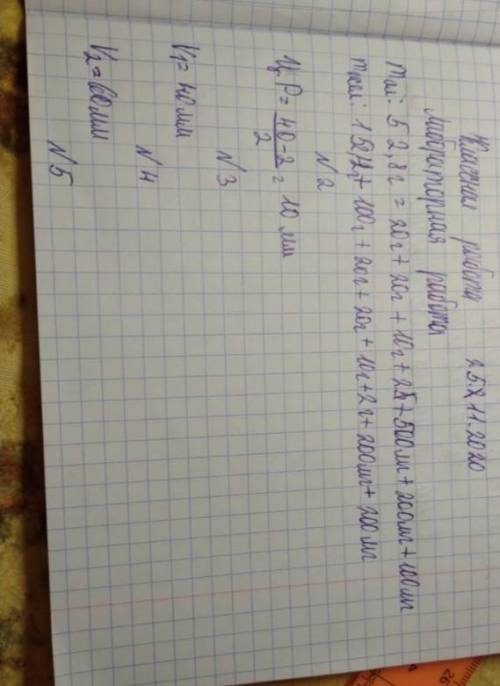 Классная работа 25.11.2020
Лабораторная работа
mм: 52,8г = 20г + 20г + 10г + 2г + 500мг + 200мг + 100мг
100г + 20г + 20г + 10г + 2г + 200мг + 200мг
N 2
Ц.Р = 40-2/2 = 10 мл
N 3
V₁ = 40мл
N 4
V₂ = 60мл
N 5
26